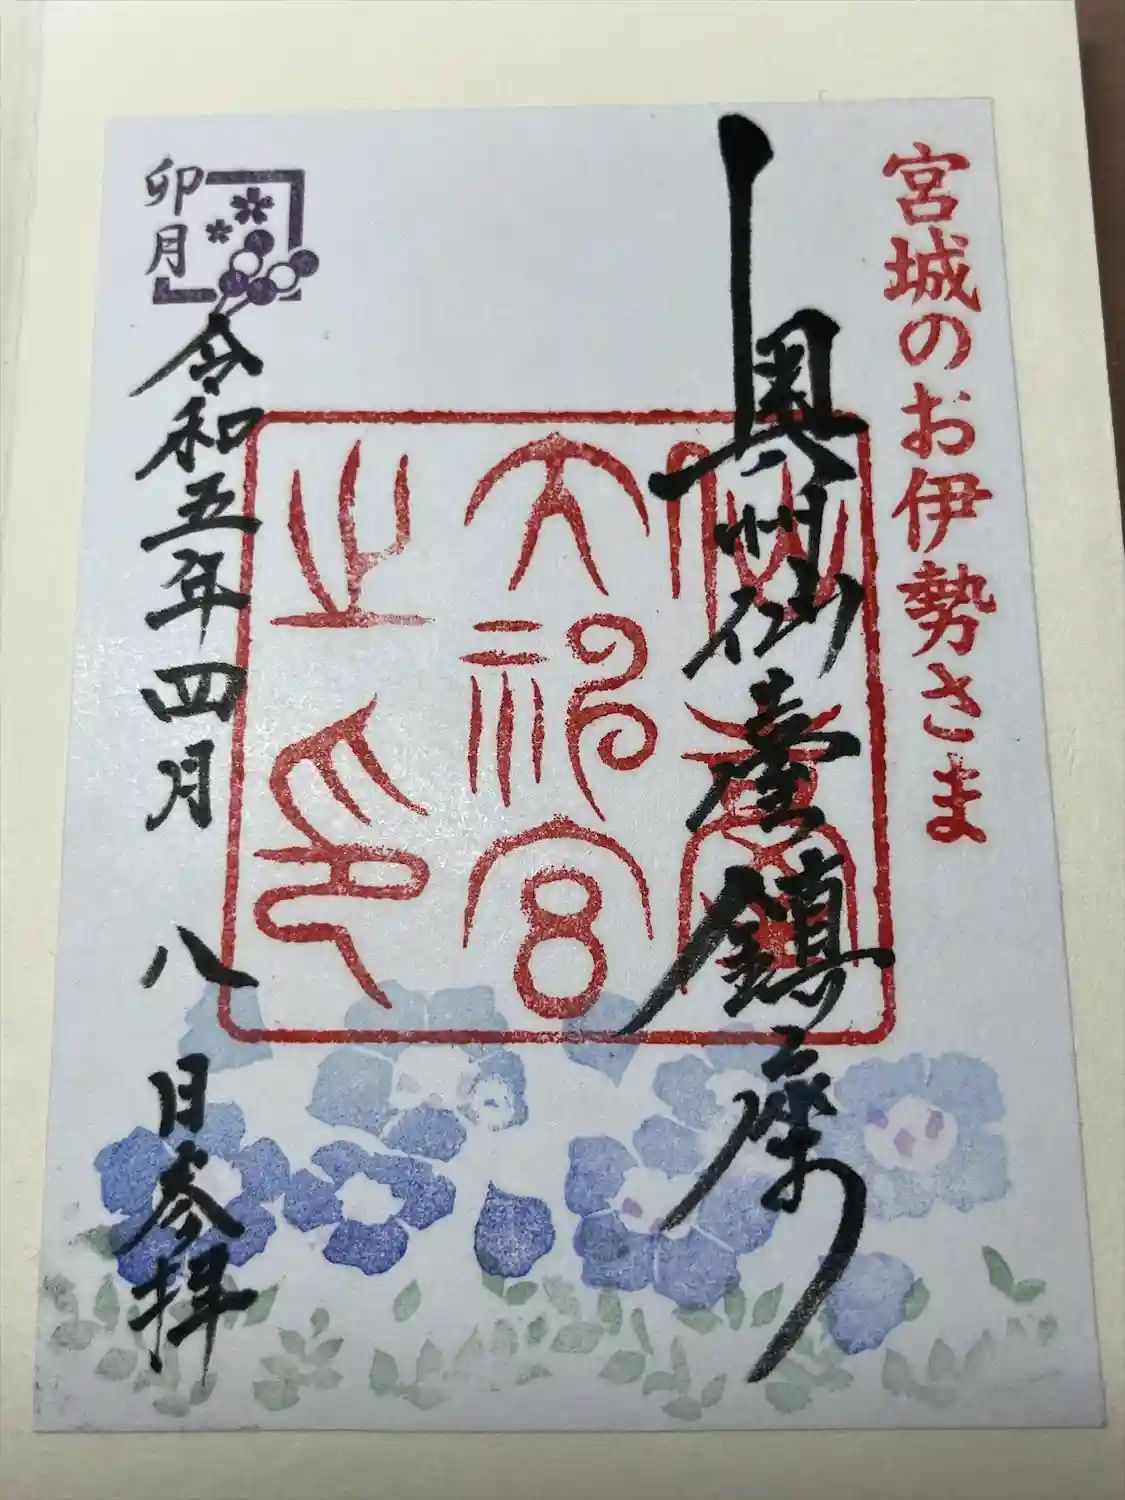 宮城のお伊勢さま
奥州仙臺鎮座
仙臺宮
大神宮
之印
卯月
令和五年四月八日参拝